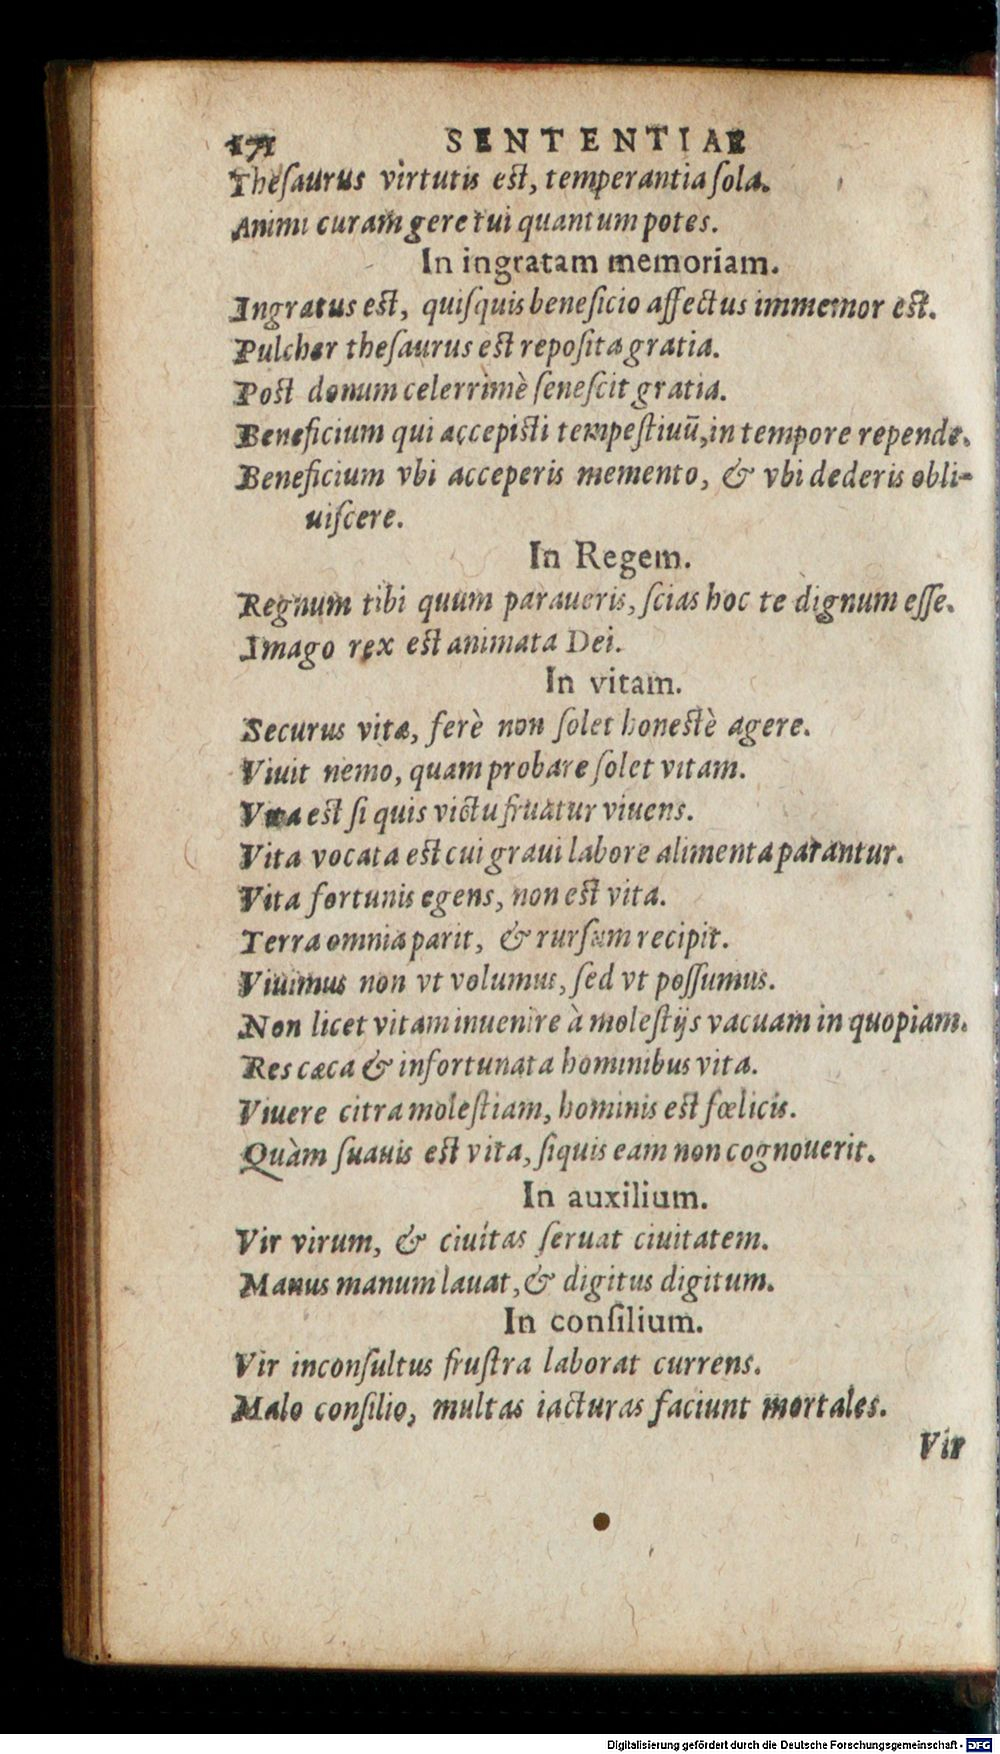 171 SENTENTIAE
Theſaurus virtutis eſt, temperantia ſola.
Animi curam gere tui quantum potes.
In ingratam memoriam.
Ingratus est, quiſquis beneficio affectus immemor est.
Pulcher theſaurus est repoſita gratia.
Post donum celerrimè ſeneſcit gratia.
Beneficium qui accepisti tempeſtiuū, in tempore repende.
Beneficium vbi acceperis memento, & vbi dederis obli-
uiſcere.
In Regem.
Regnum tibi quum paraueris, ſcias hoc te dignum eſſe.
Imago rex est animata Dei.
In vitam.
Securus vitæ, ferè non ſolet honestè agere.
Viuit nemo, quam probare ſolet vitam.
Vita est ſi quis victu fruatur viuens.
Vita vocata est cui graui labore alimenta parantur.
Vita fortunis egens, non est vita.
Terra omnia parit, & rurſum recipit.
Viuimus non vt volumus, ſed vt poſſumus.
Non licet vitam inuenire à moleſtijs vacuam in quopiam.
Res cæca & infortunata hominibus vita.
Viuere citra moleſtiam, hominis est fœlicis.
Quàm ſuauis est vita, ſiquis eam non cognouerit.
In auxilium.
Vir virum, & ciuitas ſeruat ciuitatem.
Manus manum lauat, & digitus digitum.
In conſilium.
Vir inconſultus fruſtra laborat currens.
Malo conſilio, multas iacturas faciunt mortales.
Vir
Digitalisierung gefördert durch die Deutsche Forschungsgemeinschaft - DFG